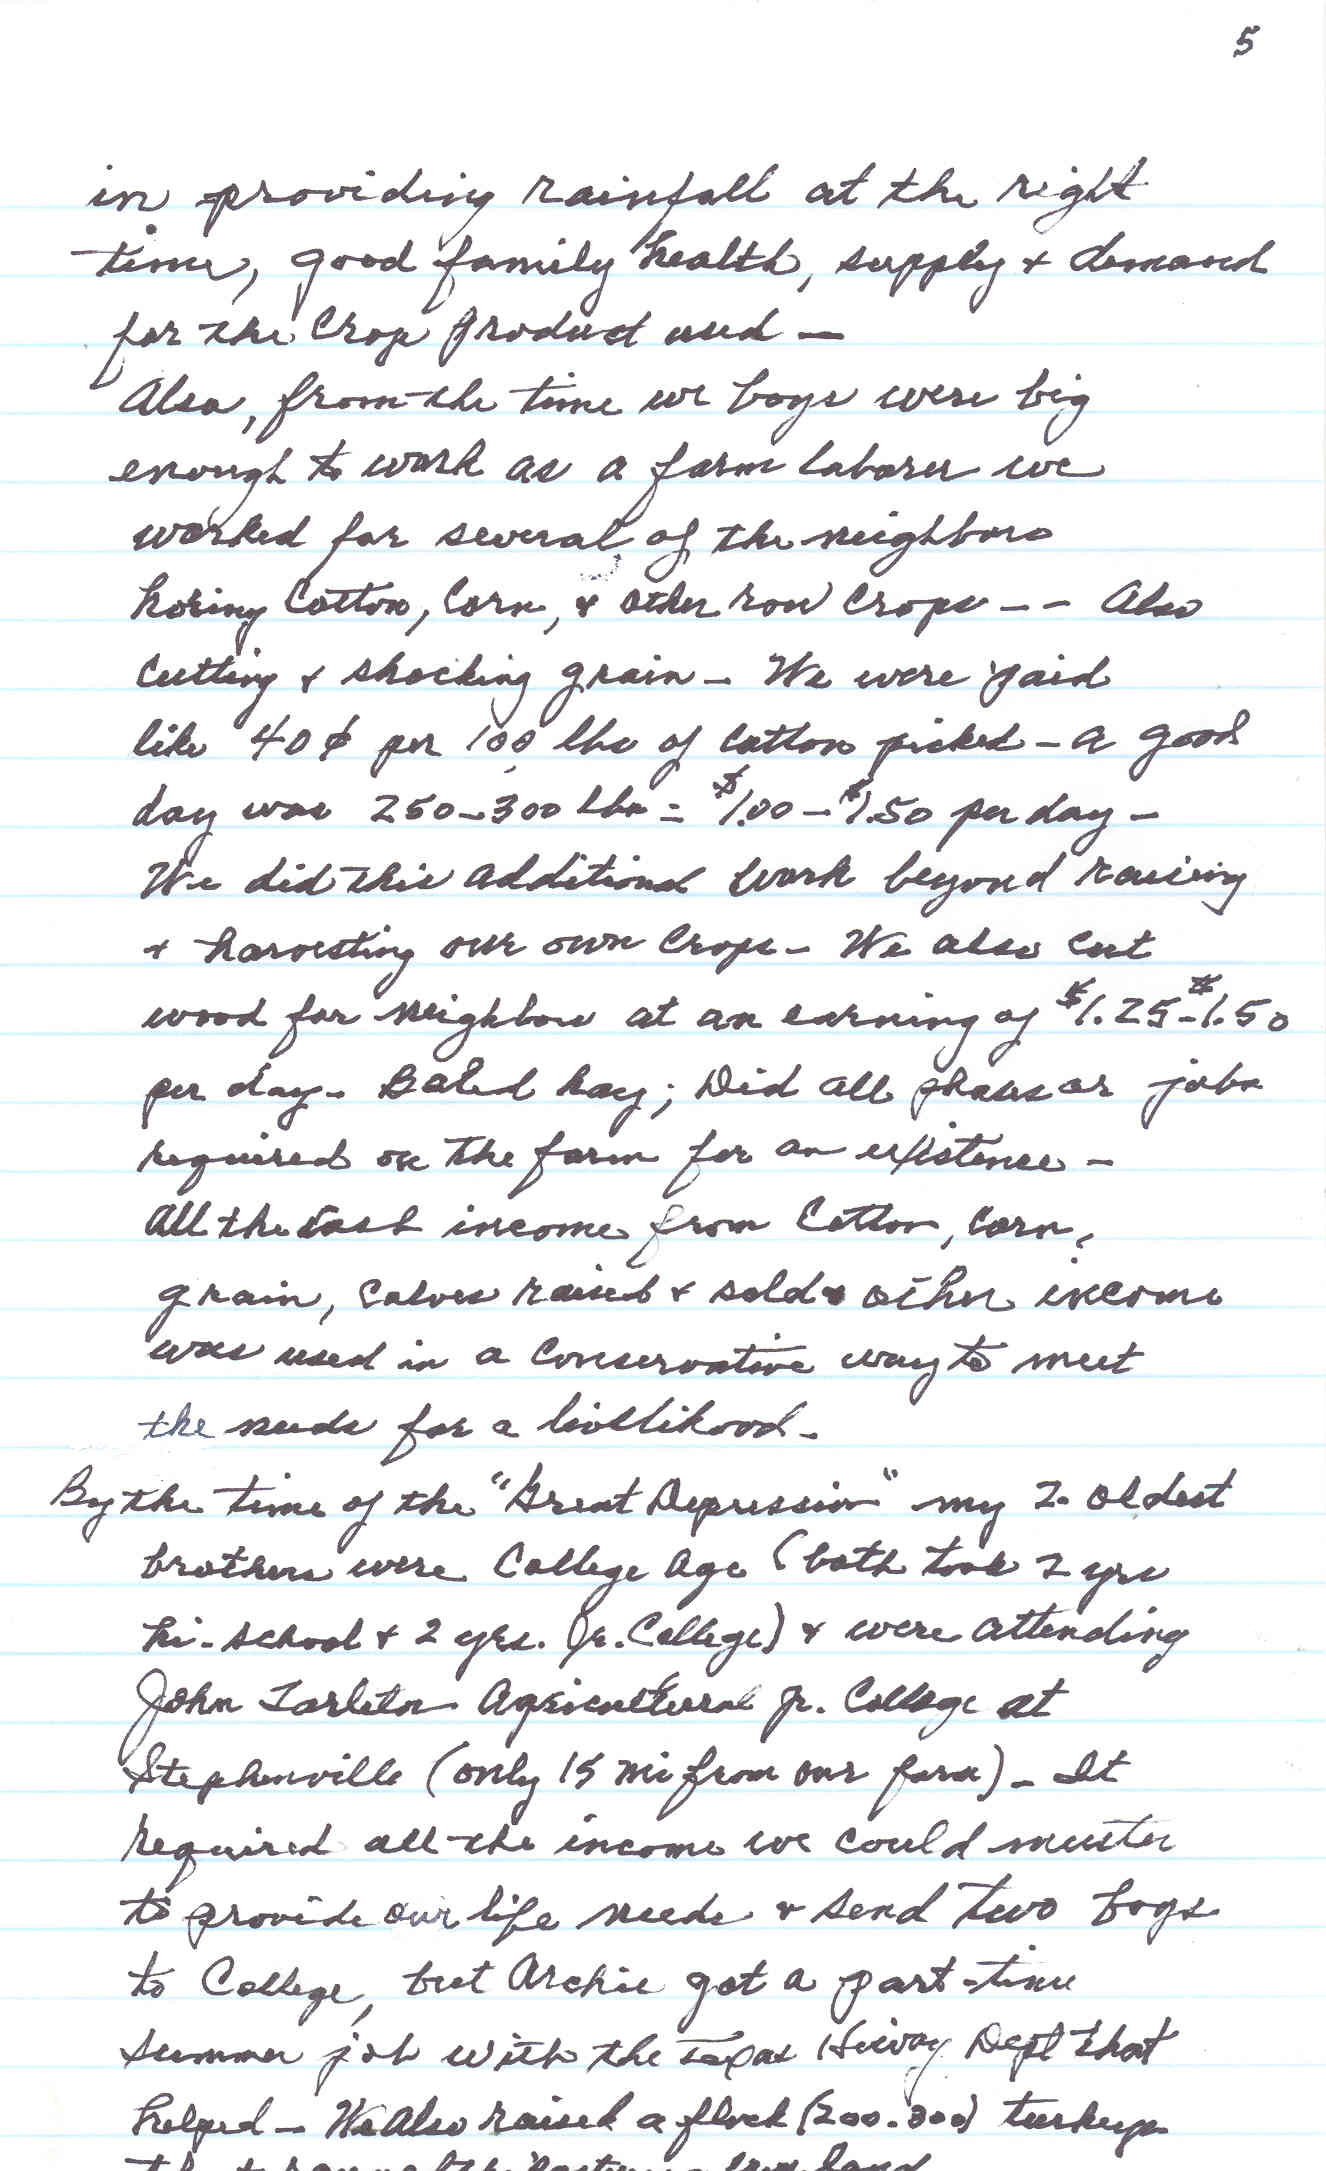 5
in providing rainfall at the right
time, good family health, supply & demand
for the Crop Product used —
Also, from the time we boys were big
enough to work as a farm laborer we
worked for several of the neighbors
hoeing Cotton, Corn, & other row Crops -- Also
Cutting & shocking grain - We were paid
like 40¢ per 100 lbs of Cotton picked - a good
day was 250-300 lbs = $1.00 - $1.50 per day -
We did this additional work beyond raising
& harvesting our own Crops - We also Cut
wood for neighbors at an earning of $1.25-$1.50
per day - Baled hay; Did all phases or jobs
required on the farm for an existence -
All the Cash income from Cotton, Corn,
grain, Calves raised & sold & other income
was used in a Conservative way to meet
the needs for a livelihood.
By the time of the "Great Depression" my 2 oldest
brothers were College Age (both took 2 yrs
hi-school & 2 yrs. Jr. College) & were attending
John Tarleton Agricultural Jr. College at
Stephenville (only 15 mi from our farm) - It
required all the income we could muster
to provide our life needs & send two boys
to College, but Archie got a part-time
summer job with the Texas Hiway Dept that
helped - We Also raised a flock (200-300) turkeys